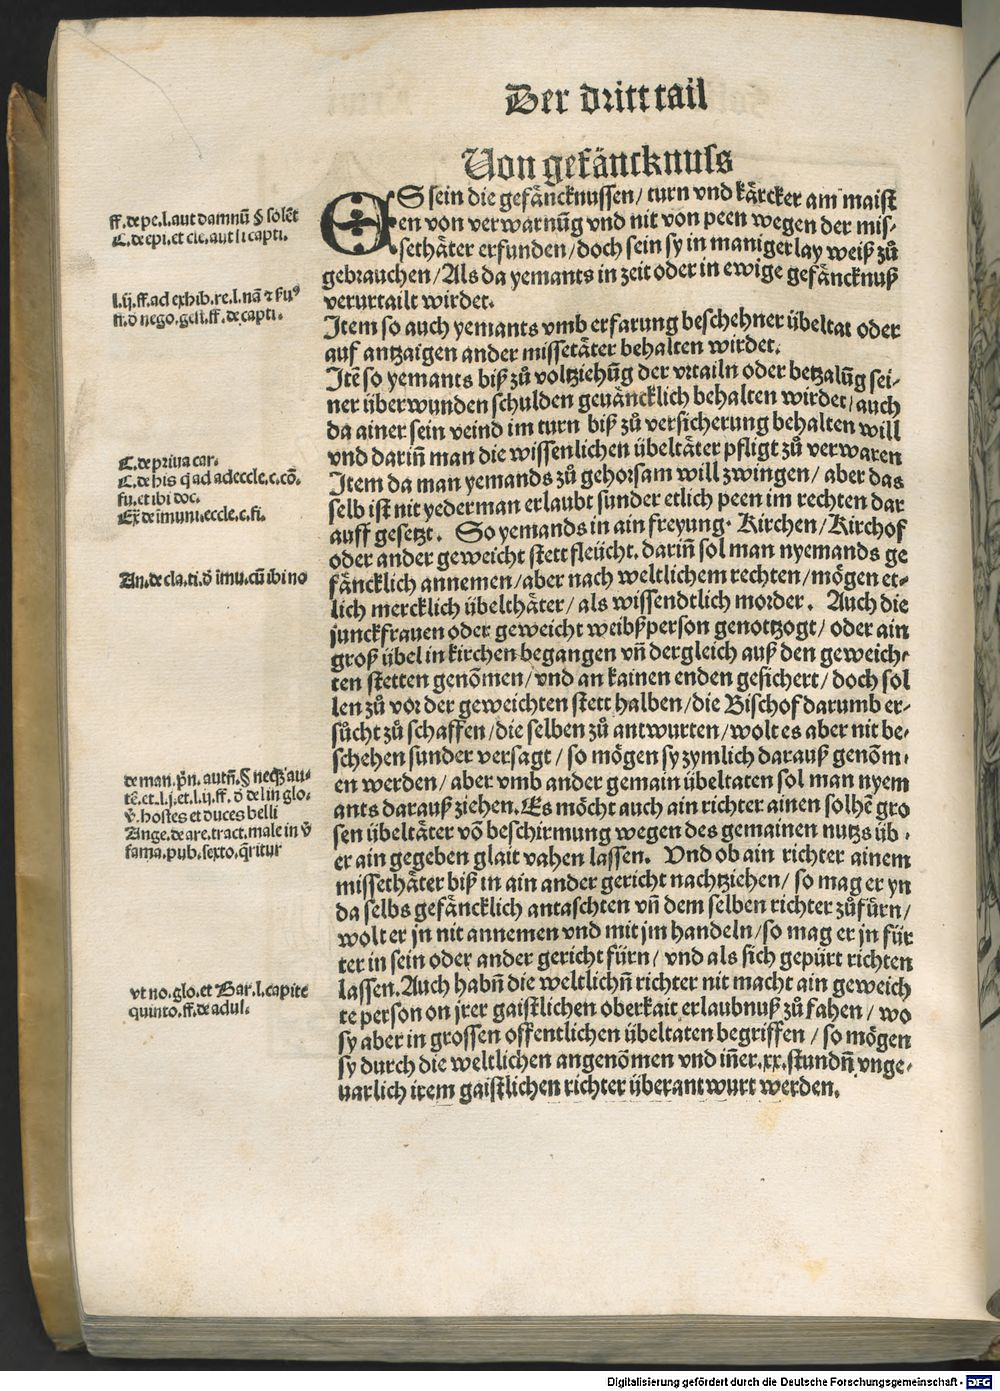 Der dritt tail
Von gefäncknuss
ES sein die gefäncknussen/ turn vnd kärcker am maist
en von verwarnūg vnd nit von peen wegen der mis-
sethäter erfunden/ doch sein sy in maniger lay weiß zů
gebrauchen/ Als da yemants in zeit oder in ewige gefäncknuß
verurtailt wirdet.
Item so auch yemants vmb erfarung beschehner übeltat oder
auf antzaigen ander missetäter behalten wirdet.
Itē so yemants biß zů voltziehūg der vrtailn oder betzalūg sei-
ner überwunden schulden geuäncklich behalten wirdet/ auch
da ainer sein veind im turn biß zů versicherung behalten will
vnd dariñ man die wissenlichen übeltäter pfligt zů verwaren
Item da man yemands zů gehorsam will zwingen/ aber das
selb ist nit yederman erlaubt sunder etlich peen im rechten dar
auff gesetzt. So yemands in ain freyung. Kirchen/ Kirchof
oder ander geweicht stett fleücht. dariñ sol man nyemands ge
fäncklich annemen/ aber nach weltlichem rechten/ mögen et-
lich mercklich übelthäter/ als wissendtlich morder. Auch die
junckfrauen oder geweicht weibßperson genottzogt/ oder ain
groß übel in kirchen begangen vñ dergleich auß den geweich-
ten stetten genōmen/ vnd an kainen enden gesichert/ doch sol
len zů vor der geweichten stett halben/ die Bischof darumb er-
sůcht zů schaffen/ die selben zů antwurten/ wolt es aber nit be-
schehen sunder versagt/ so mögen sy zymlich darauß genōm-
en werden/ aber vmb ander gemain übeltaten sol man nyem
ants darauß ziehen. Es möcht auch ain richter ainen solhē gro
sen übeltäter vō beschirmung wegen des gemainen nutzs üb-
er ain gegeben glait vahen lassen. Vnd ob ain richter ainem
missethäter biß in ain ander gericht nachtziehen/ so mag er yn
da selbs gefäncklich antaschten vñ dem selben richter zůfürn/
wolt er jn nit annemen vnd mit jm handeln/ so mag er jn für
ter in sein oder ander gericht fürn/ vnd als sich gepürt richten
lassen. Auch habñ die weltlichñ richter nit macht ain geweich
te person on jrer gaistlichen oberkait erlaubnuß zů fahen/ wo
sy aber in grossen offentlichen übeltaten begriffen/ so mögen
sy durch die weltlichen angenōmen vnd iñer.xx.stundñ vnge-
uarlich irem gaistlichen richter überantwurt werden.
ff. de pe. l. aut damnū § solēt
C. de epi. et cle. aut si capti.
l. ij. ff. ad exhib. re. l. nā
ff. de capti.
C. de priua car.
C. de his q̄ ad adeccle. c. cō-
fu. et ibi doc.
Ex̄ de imuni. eccle. c. fi.
An. de cla. ti. ō imu. cū ibi no
de man. pn. autñ. § neqz au-
tē. et. l. j. et. l. ij. ff. ō del in glo.
v̄. hostes et duces belli
Ange. de are. tract. male in v̄
fama. pub. sexto. q̄ritur
vt no. glo. et Bar. l. capite
quinto. ff. de adul.
Digitalisierung gefördert durch die Deutsche Forschungsgemeinschaft - DFG